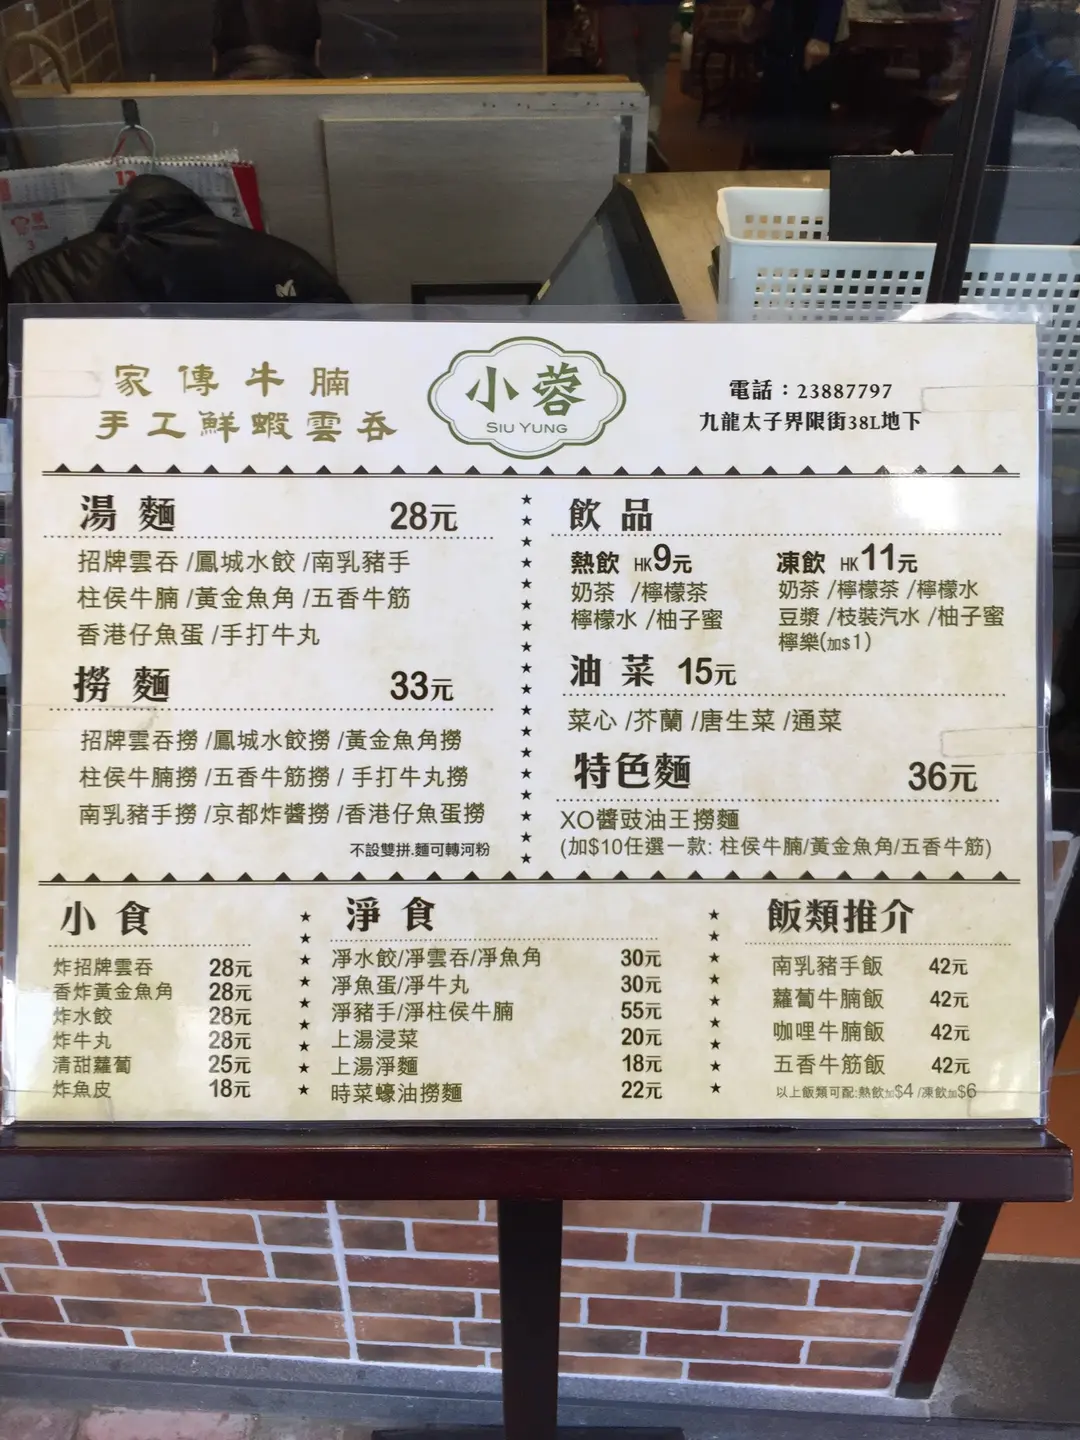 家傳牛腩
手工鮮蝦雲吞
小蓉
SIU YUNG
電話：23887797
九龍太子界限街38L地下
湯麵 28元
招牌雲吞 /鳳城水餃 /南乳豬手
柱侯牛腩 /黃金魚角 /五香牛筋
香港仔魚蛋 /手打牛丸
撈麵 33元
招牌雲吞撈 /鳳城水餃撈 /黃金魚角撈
柱侯牛腩撈 /五香牛筋撈 / 手打牛丸撈
南乳豬手撈 /京都炸醬撈 /香港仔魚蛋撈
不設雙拼.麵可轉河粉
飲品
熱飲 HK9元
奶茶 /檸檬茶
檸檬水 /柚子蜜
凍飲 HK11元
奶茶 /檸檬茶 /檸檬水
豆漿 /枝裝汽水 /柚子蜜
檸樂(加$1)
油菜 15元
菜心 /芥蘭 /唐生菜 /通菜
特色麵 36元
XO醬豉油王撈麵
(加$10任選一款: 柱侯牛腩/黃金魚角/五香牛筋)
小食
炸招牌雲吞 28元
香炸黃金魚角 28元
炸水餃 28元
炸牛丸 28元
清甜蘿蔔 25元
炸魚皮 18元
淨食
淨水餃/淨雲吞/淨魚角 30元
淨魚蛋/淨牛丸 30元
淨豬手/淨柱侯牛腩 55元
上湯浸菜 20元
上湯淨麵 18元
時菜蠔油撈麵 22元
飯類推介
南乳豬手飯 42元
蘿蔔牛腩飯 42元
咖哩牛腩飯 42元
五香牛筋飯 42元
以上飯類可配:熱飲加$4 /凍飲加$6
12
3
2